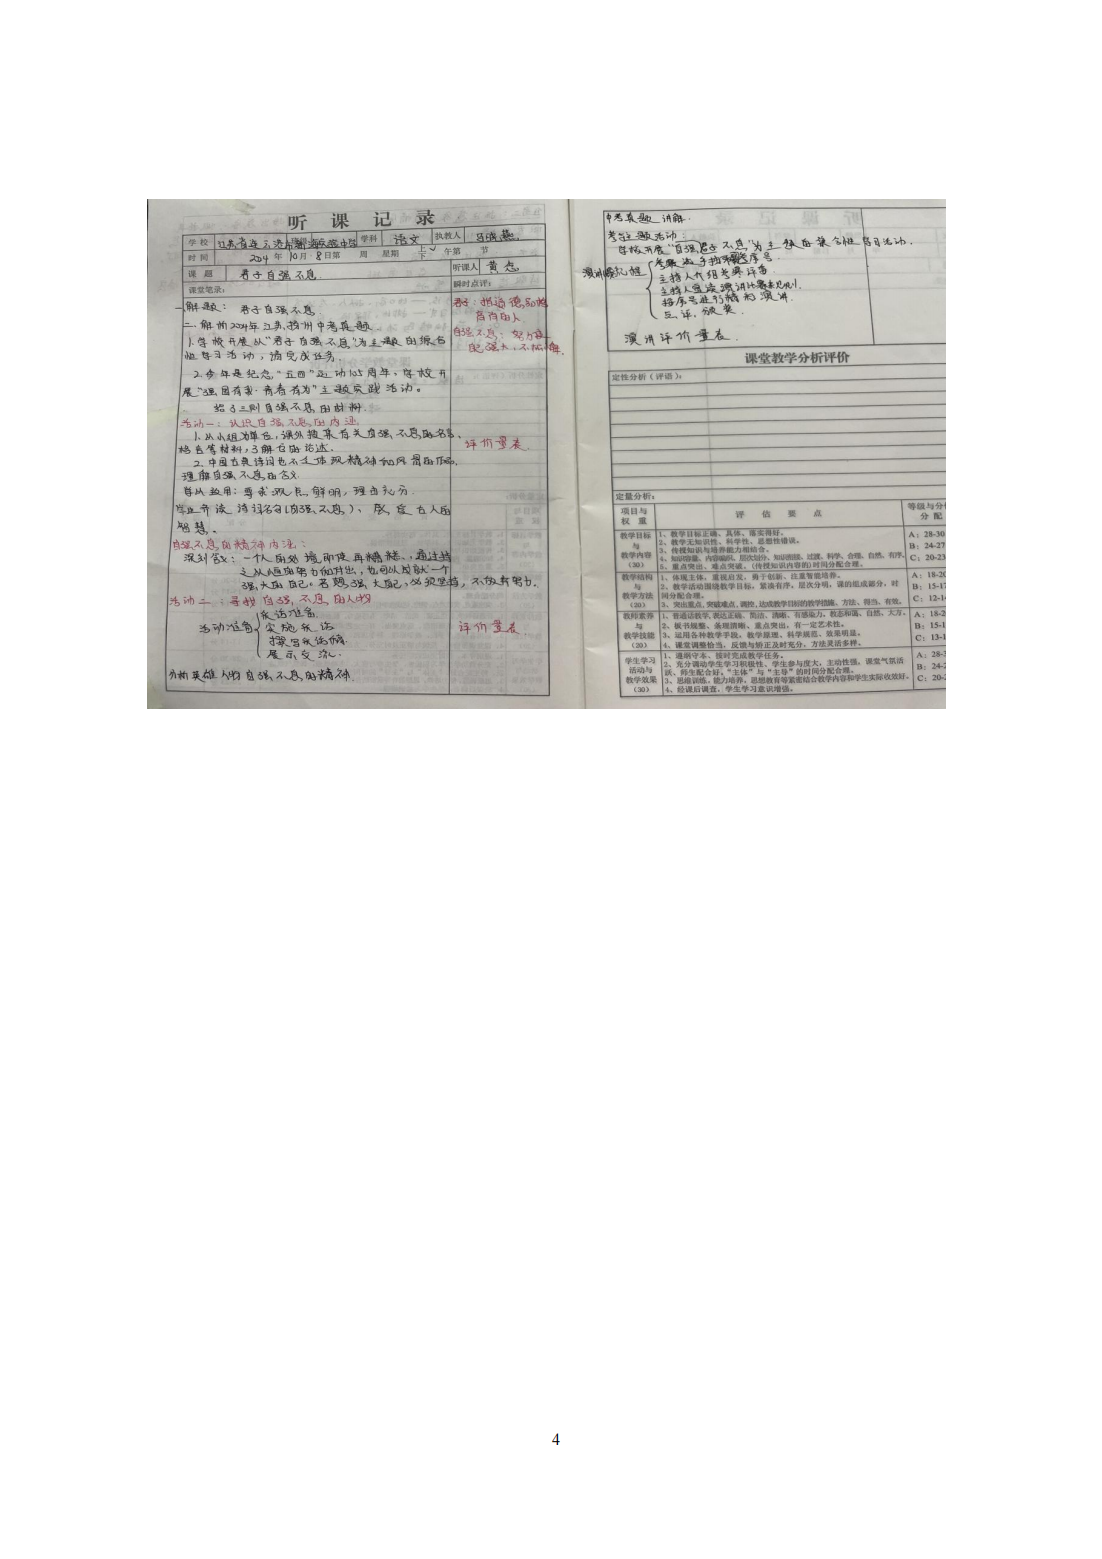 听 课 记 录
学 校 江苏省连云港市 中学 学科 语文 执教人
时 间 2024 年 10 月 8 日第 周 星期 上 下 午第 节
课 题 君子自强不息 听课人 黄
课堂笔录： 瞬时点评：
一.解题： 君子自强不息.
君子：指道德品格
高尚的人
二.解析2024年江苏扬州中考真题
自强不息：努力使
自己强大,不松懈.
1.学校开展从"君子自强不息"为主题的综合
性学习活动，请完成任务.
2.今年是纪念"五四"运动105周年，学校开
展"强国有我·青春有为"主题实践活动。
给了三则自强不息的材料.
活动一：认识自强不息的内涵.
1.从小组为单位，课外搜集有关自强不息的名言、
格言等材料,了解它的论述. 评价量表
2.中国古典诗词也不乏体现精神和风骨的作品.
理解自强不息的含义.
学以致用：要求观点鲜明，理由充分.
学生齐读诗词名句(自强不息)，感应古人的
智慧。
自强不息的精神内涵：
深刻含义：一个人的处境即使再糟糕，通过持
之以恒的努力和付出，也可以成就一个
强大的自己。若想强大自己,必须坚持，不放弃努力.
活动二：寻找自强不息的人物
活动准备
采访准备
实施采访
撰写采访稿
展示交流.
评价量表
分析英雄人物自强不息的精神.
中考真题讲解.
考生主题活动：
学校开展"自强君子不息"为主题的综合性学习活动.
演讲赛流程
主持人介绍考察评委
主持人宣读演讲比赛规则.
按序号进行精彩演讲.
互、评、颁奖.
演讲评价量表.
课堂教学分析评价
定性分析（评语）：
定量分析：
项目与 权 重 评 估 要 点 等级与分 分 配
教学目标 与 教学内容 （30）
1、教学目标正确、具体、落实得好。
2、教学无知识性、科学性、思想性错误。
3、传授知识与培养能力相结合。
4、知识容量、内容编织、层次划分、知识衔接、过渡、科学、合理、自然、有序。
5、重点突出、难点突破，（传授知识内容的）时间分配合理。
A：28-30
B：24-27
C：20-23
教学结构 与 教学方法 （20）
1、体现主体，重视启发，勇于创新、注重智能培养。
2、教学活动围绕教学目标，紧凑有序，层次分明，课的组成部分，时
间分配合理。
3、突出重点,突破难点、调控,达成教学目标的教学措施，方法、得当、有效。
A：18-20
B：15-17
C：12-14
教师素养 与 教学技能 （20）
1、普通话教学,表达正确、简洁、清晰、有感染力，教态和蔼、自然、大方。
2、板书规整、条理清晰、重点突出、有一定艺术性。
3、运用各种教学手段、教学原理、科学规范、效果明显。
4、课堂调整恰当，反馈与矫正及时充分，方法灵活多样。
A：18-2
B：15-1
C：13-1
学生学习 活动与 教学效果 （30）
1、遵纲守本、按时完成教学任务。
2、充分调动学生学习积极性、学生参与度大，主动性强，课堂气氛活
跃、师生配合好，"主体"与"主导"的时间分配合理。
3、思维训练、能力培养、思想教育等紧密结合教学内容和学生实际收效好。
4、经课后调查、学生学习意识增强。
A：28-3
B：24-2
C：20-2
4